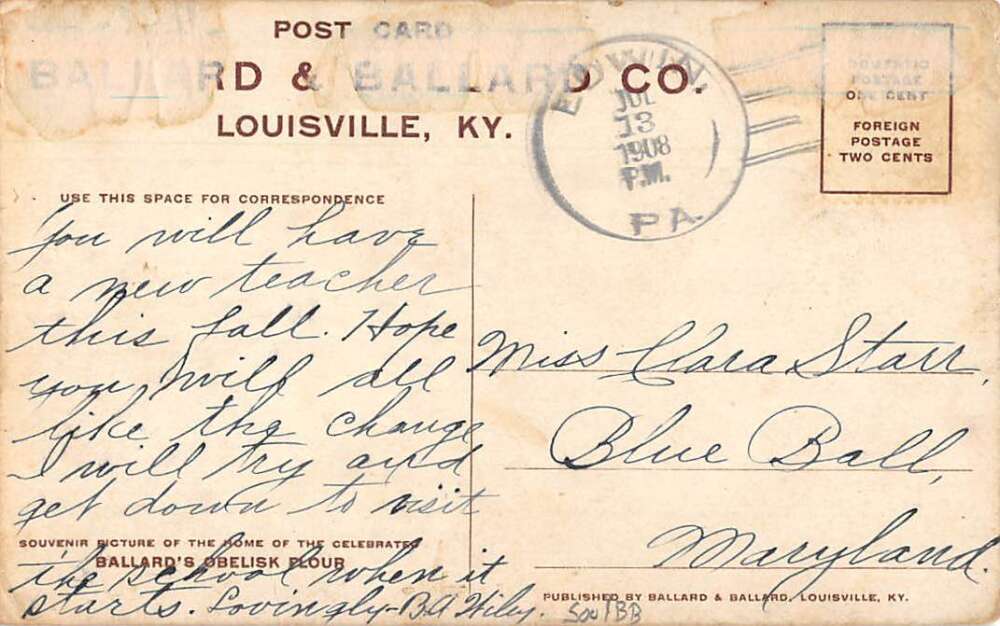 POST CARD
BALLARD & BALLARD CO.
LOUISVILLE, KY.
JUL
13
1908
P.M.
PA.
DOMESTIC
POSTAGE
ONE CENT
FOREIGN
POSTAGE
TWO CENTS
USE THIS SPACE FOR CORRESPONDENCE
You will have
a new teacher
this fall. Hope
you will all
like the change
I will try and
get down to visit
SOUVENIR PICTURE OF THE HOME OF THE CELEBRATED
BALLARD'S OBELISK FLOUR
the school when it
starts. Lovingly - B.A. Wiley.
Miss Clara Starr,
Blue Ball,
Maryland.
PUBLISHED BY BALLARD & BALLARD, LOUISVILLE, KY.